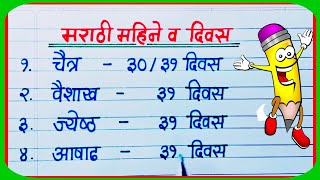 मराठी महिने व दिवस
१. चैत्र - ३०/३१ दिवस
२. वैशाख - ३१ दिवस
३. ज्येष्ठ - ३१ दिवस
४. आषाढ - ३१ दिवस